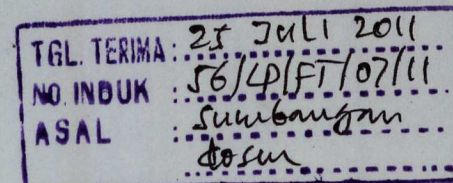 TGL. TERIMA : 25 JULI 2011
NO. INDUK : 56/LP/FT/07/11
ASAL : Sumbangan
dosen